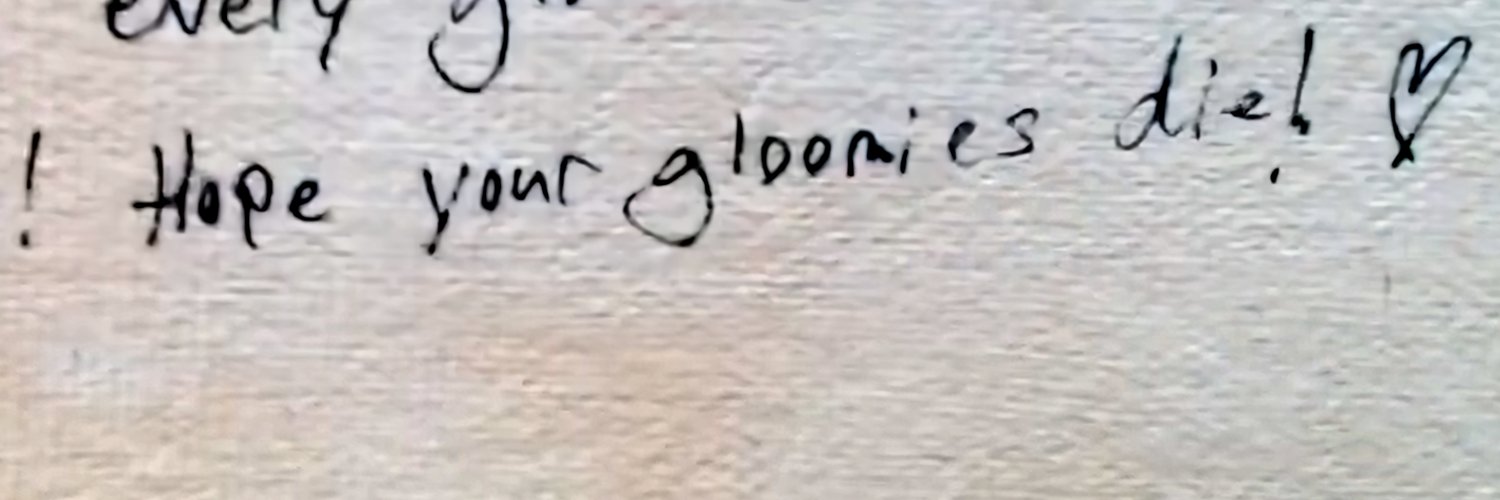 every
! Hope your gloomies die! ♡